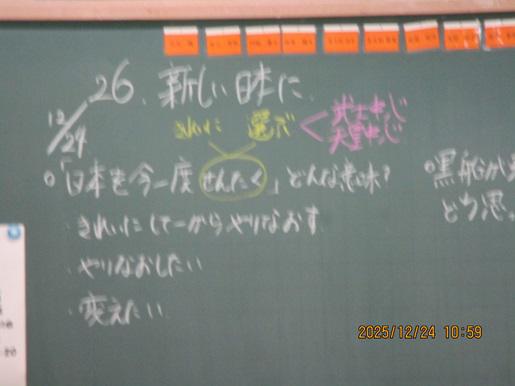 26. 新しい日本に
12/24
きれいに 選ぶ < 武士中心
天皇中心
○「日本を今一度せんたく」どんな意味?
・きれいにして一からやりなおす
・やりなおしたい
・変えたい
○黒船が
どう思
2025/12/24 10:59